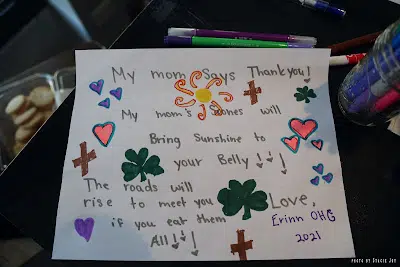 My mom Says Thank you!
My mom's Scones will
Bring Sunshine to
your Belly!!!
The roads will
rise to meet you
if you eat them
All!!!
Love,
Erinn OHG
2021
PHOTO BY STACIE JOY